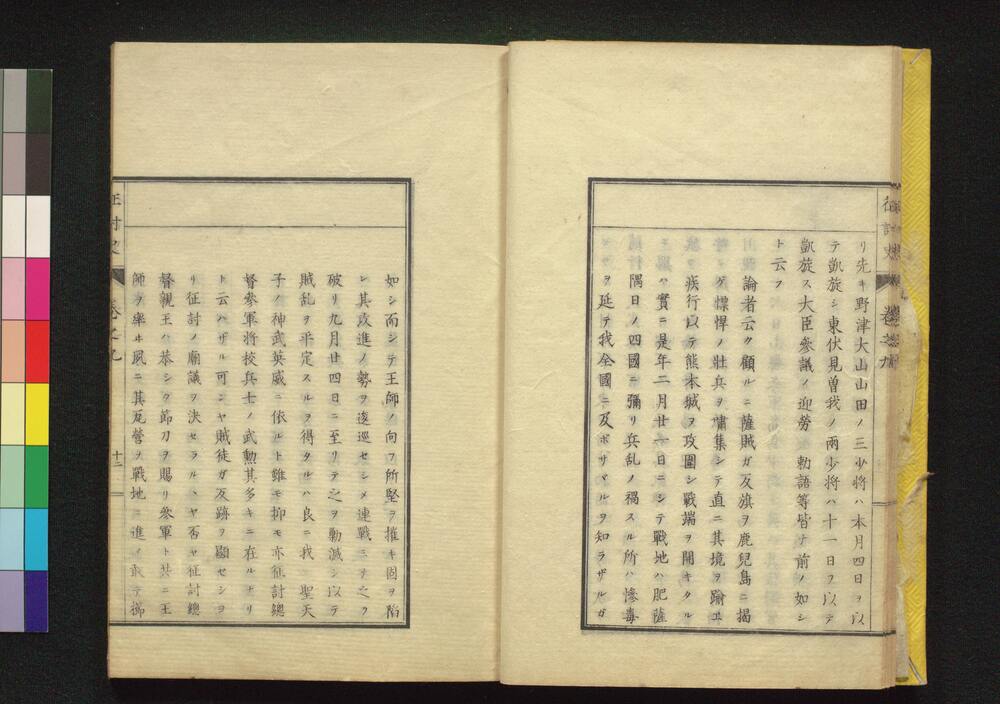 リ先キ野津大山山田ノ三少将ハ本月四日ヲ以
テ凱旋シ東伏見曽我ノ兩少将ハ十一日ヲ以テ
凱旋ス大臣參議ノ迎勞勅語等皆ナ前ノ如シ
ト云フ
論者云ク顧ルニ薩賊ガ反旗ヲ鹿兒島ニ揭
ゲ慓悍ノ壮兵ヲ嘯集シテ直ニ其境ヲ踰エ
疾行以テ熊本城ヲ攻圍シ戰端ヲ開キタル
ハ實ニ是年二月廿一日ニシテ戰地ハ肥薩
隅日ノ四國ニ彌リ兵乱ノ禍スル所ハ惨毒
ヲ延テ我全國ニ及ボサザルヲ知ラザルガ
如シ而シテ王師ノ向フ所堅ヲ摧キ固ヲ陷
シ其攻進ノ勢ヲ逡巡セシメ連戰
破リ九月廿四日ニ至リテ之ヲ勦滅シ以テ
賊乱ヲ平定スルヲ得タルハ良ニ我 聖天
子ノ神武英威ニ依ルト雖モ抑モ亦征討總
督參軍将校兵士ノ武勲其多キニ在ルナリ
ト云ハザル可シヤ賊徒ガ反跡ヲ顯セシヨ
リ征討ノ廟議ヲ決セラル丶ヤ否ヤ征討總
督親王ハ恭シク節刀ヲ賜リ參軍ト共ニ王
師ヲ率ヰ夙ニ其瓦營ヲ戰地ニ進メ
征討史
卷之九
十二